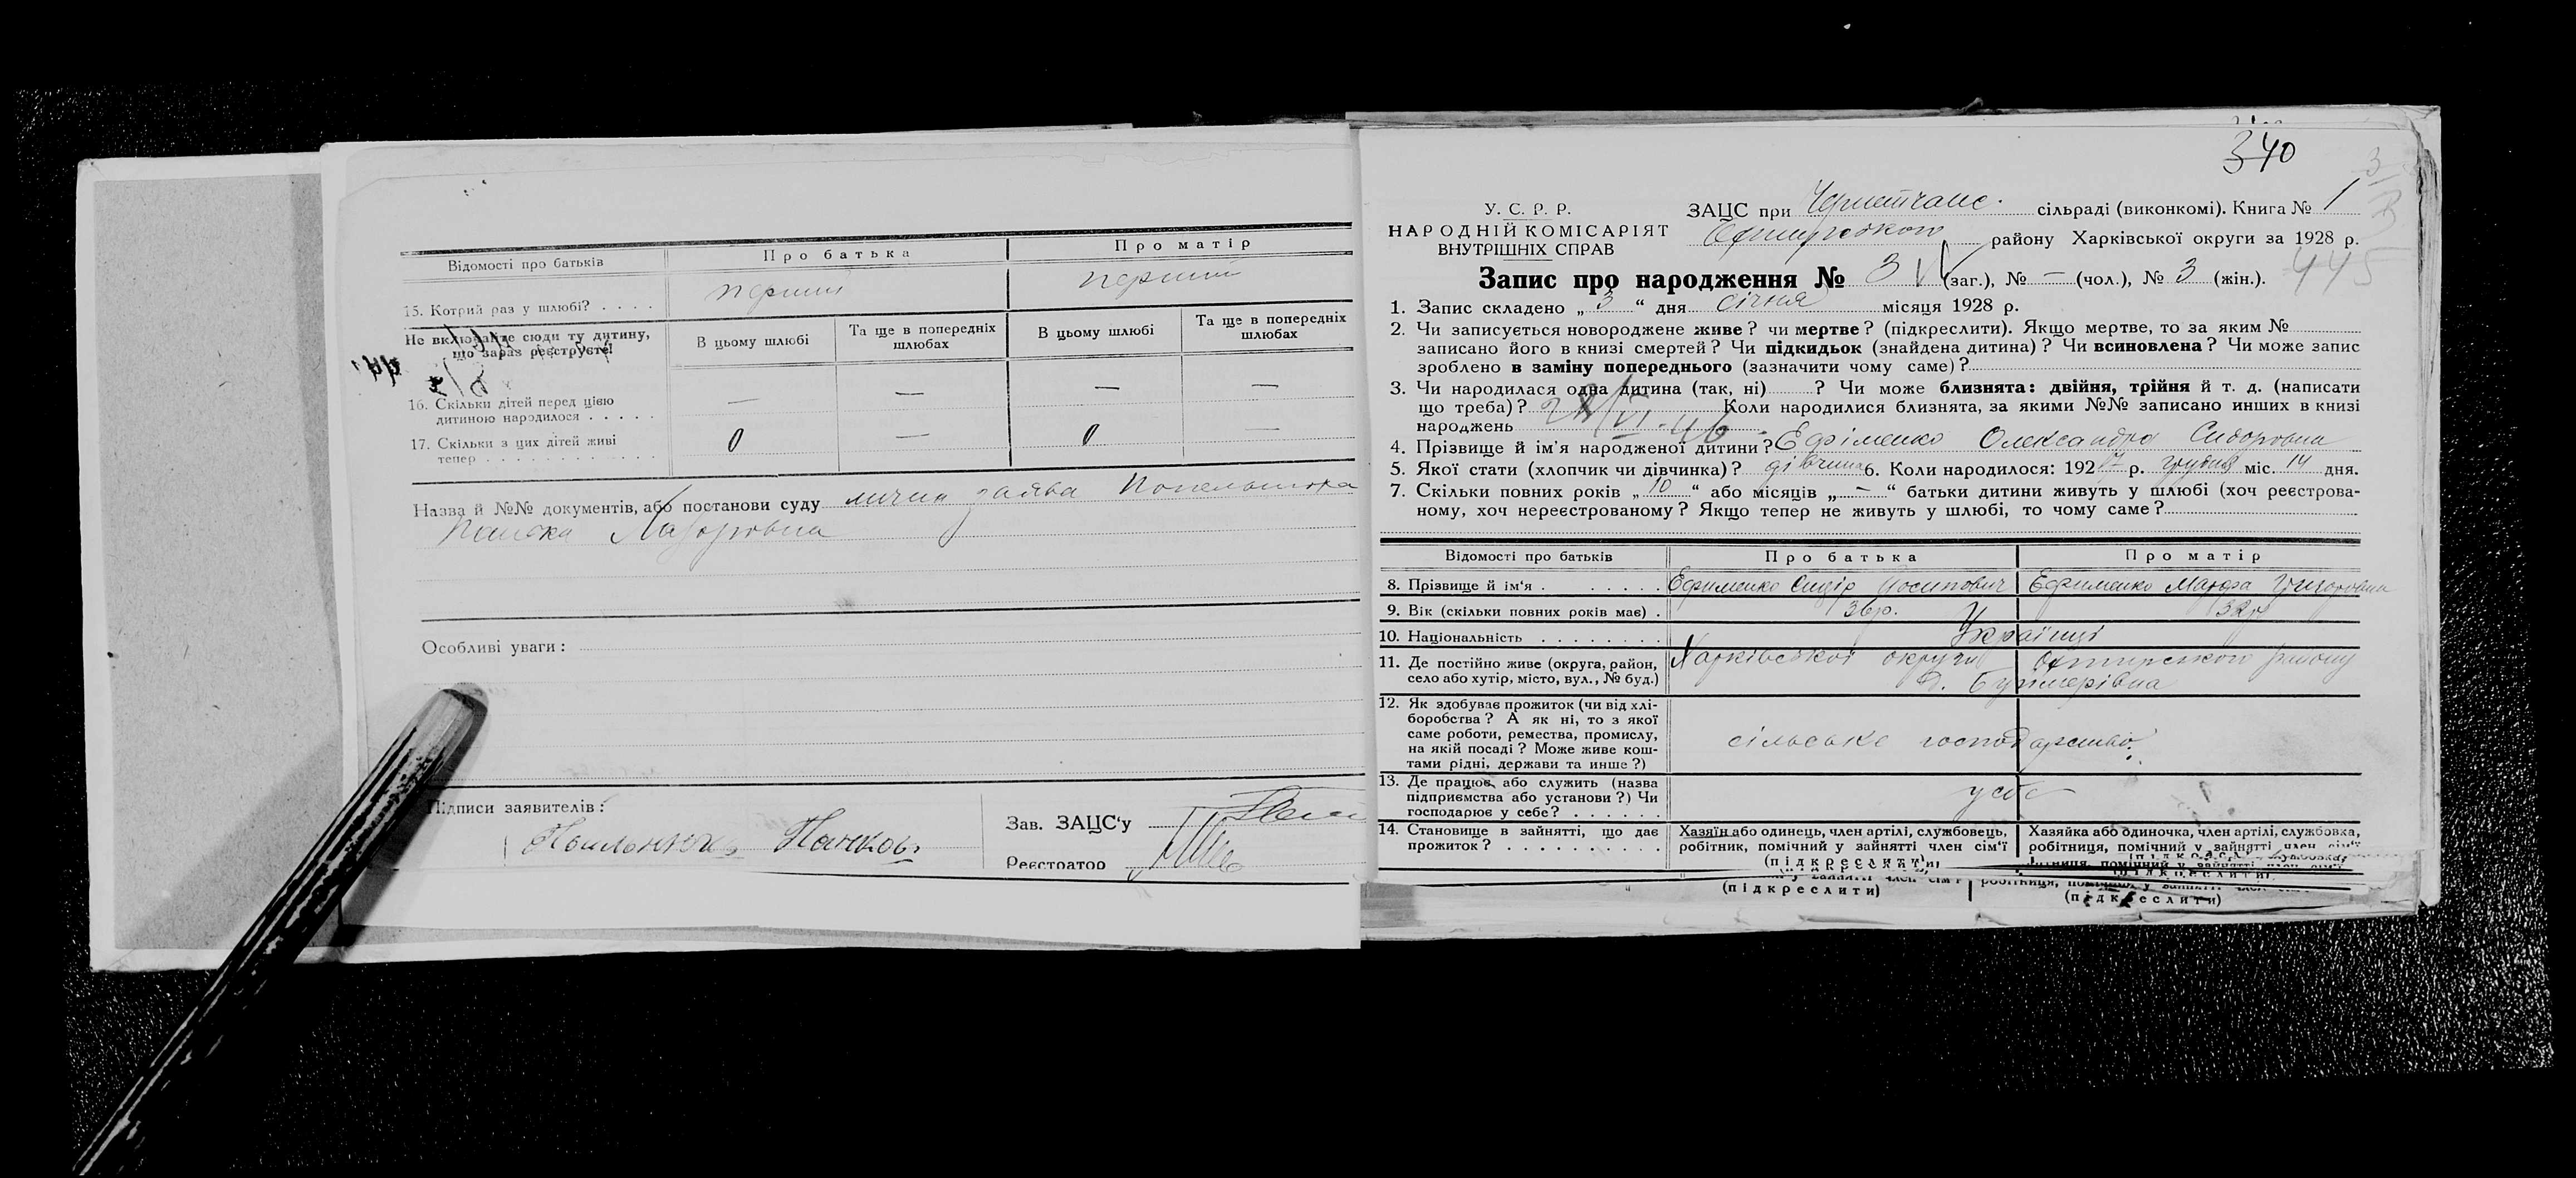 Відомості про батьків
Про батька
Про матір
15. Котрий раз у шлюбі? . . . .
перший
перший
Не включайте сюди ту дитину,
що зараз реєструєте!
В цьому шлюбі
Та ще в попередніх
шлюбах
В цьому шлюбі
Та ще в попередніх
шлюбах
16. Скільки дітей перед цією
дитиною народилося . . . . .
— — — —
17. Скільки з цих дітей живі
тепер . . . . . . . . . . . .
0 — 0 —
Назва й №№ документів, або постанови суду лична заява
Особливі уваги:
Підписи заявителів:
Зав. ЗАЦС'у
Реєстратор
340
У. С. Р. Р.
НАРОДНІЙ КОМІСАРІЯТ
ВНУТРІШНІХ СПРАВ
ЗАЦС при сільраді (виконкомі). Книга № 1
району Харківської округи за 1928 р.
445
Запис про народження № 3 (заг.), № — (чол.), № 3 (жін.).
1. Запис складено „ 3 “ дня січня місяця 1928 р.
2. Чи записується новороджене живе? чи мертве? (підкреслити). Якщо мертве, то за яким №
записано його в книзі смертей? Чи підкидьок (знайдена дитина)? Чи всиновлена? Чи може запис
зроблено в заміну попереднього (зазначити чому саме)?
3. Чи народилася одна дитина (так, ні) ? Чи може близнята: двійня, трійня й т. д. (написати
що треба)? Коли народилися близнята, за якими №№ записано инших в книзі
народжень
4. Прізвище й ім'я народженої дитини? Ефіменко Олександра Сидоровна
5. Якої статі (хлопчик чи дівчинка)? дівчина 6. Коли народилося: 1927 р. грудня міс. 14 дня.
7. Скільки повних років „ 10 “ або місяців „ – “ батьки дитини живуть у шлюбі (хоч реєстрова-
ному, хоч нереєстрованому? Якщо тепер не живуть у шлюбі, то чому саме?
Відомості про батьків
Про батька
Про матір
8. Прізвище й ім'я . . . . . .
Ефименко Сидір Йосипович
Ефименко Марфа Григоровна
9. Вік (скільки повних років має) .
36 р.
32 р.
10. Національність . . . . . . . .
Українці
11. Де постійно живе (округа, район,
село або хутір, місто, вул., № буд.)
Харківської округи Охтирського району
с. Буймерівна
12. Як здобуває прожиток (чи від хлі-
боробства? А як ні, то з якої
саме роботи, ремества, промислу,
на якій посаді? Може живе кош-
тами рідні, держави та инше?)
сільське господарство
13. Де працює або служить (назва
підприємства або установи?) Чи
господарює у себе? . . . . . .
у себе
14. Становище в зайнятті, що дає
прожиток? . . . . . . . . . .
Хазяїн або одинець, член артілі, службовець,
робітник, помічний у зайнятті член сім'ї
(підкреслити)
Хазяйка або одиночка, член артілі, службовка,
робітниця, помічний у зайнятті член сім'ї
(підкреслити)
(підкреслити)